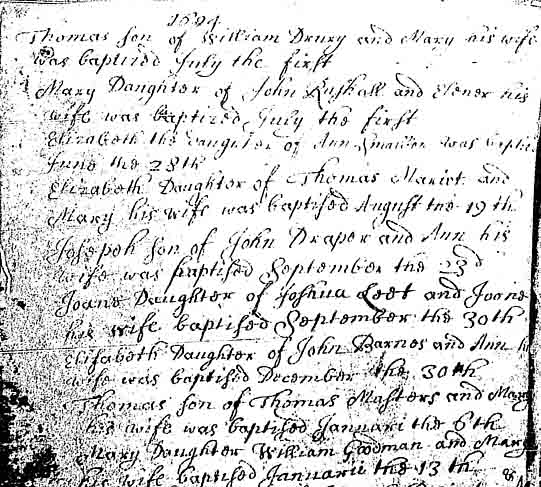 1694
Thomas son of William Drury and Mary his wife
was baptized July the first
Mary Daughter of John Rushall and Elener his
wife was baptized July the first
Elizabeth the daughter of Ann was bapti
June the 28th
Elizabeth Daughter of Thomas Mariot and
Mary his wife was baptised August the 19th
Joseph son of John Draper and Ann his
wife was baptised September the 23d
Joane Daughter of Joshua Leet and Joane
his wife baptised September the 30th
Elisabeth Daughter of John Barnes and Ann h
wife was baptised December the 30th
Thomas son of Thomas Masters and Mary
his wife was baptised Januari the 6th
Mary Daughter William Goodman and Mary
his wife baptised Januarii the 13th